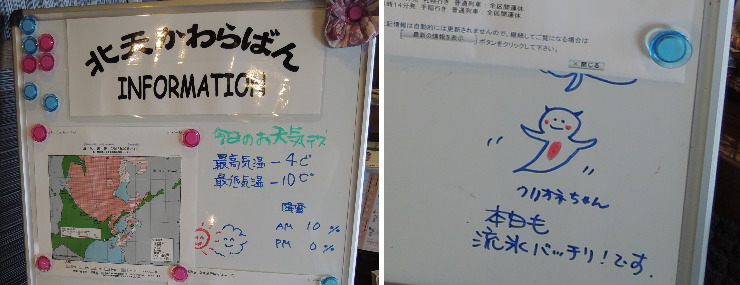 北天かわらばん
INFORMATION
今日のお天気デス
最高気温 -4℃
最低気温 -10℃
降雪
AM 10 %
PM 0 %
普通列車：全区間運休
時14分発 手稲行き 普通列車：全区間運休
記情報は自動的には更新されませんので、継続してご覧になる場合は
最新の情報を表示 ボタンをクリックして下さい。
×閉じる
クリオネちゃん
本日も
流氷バッチリ！です。